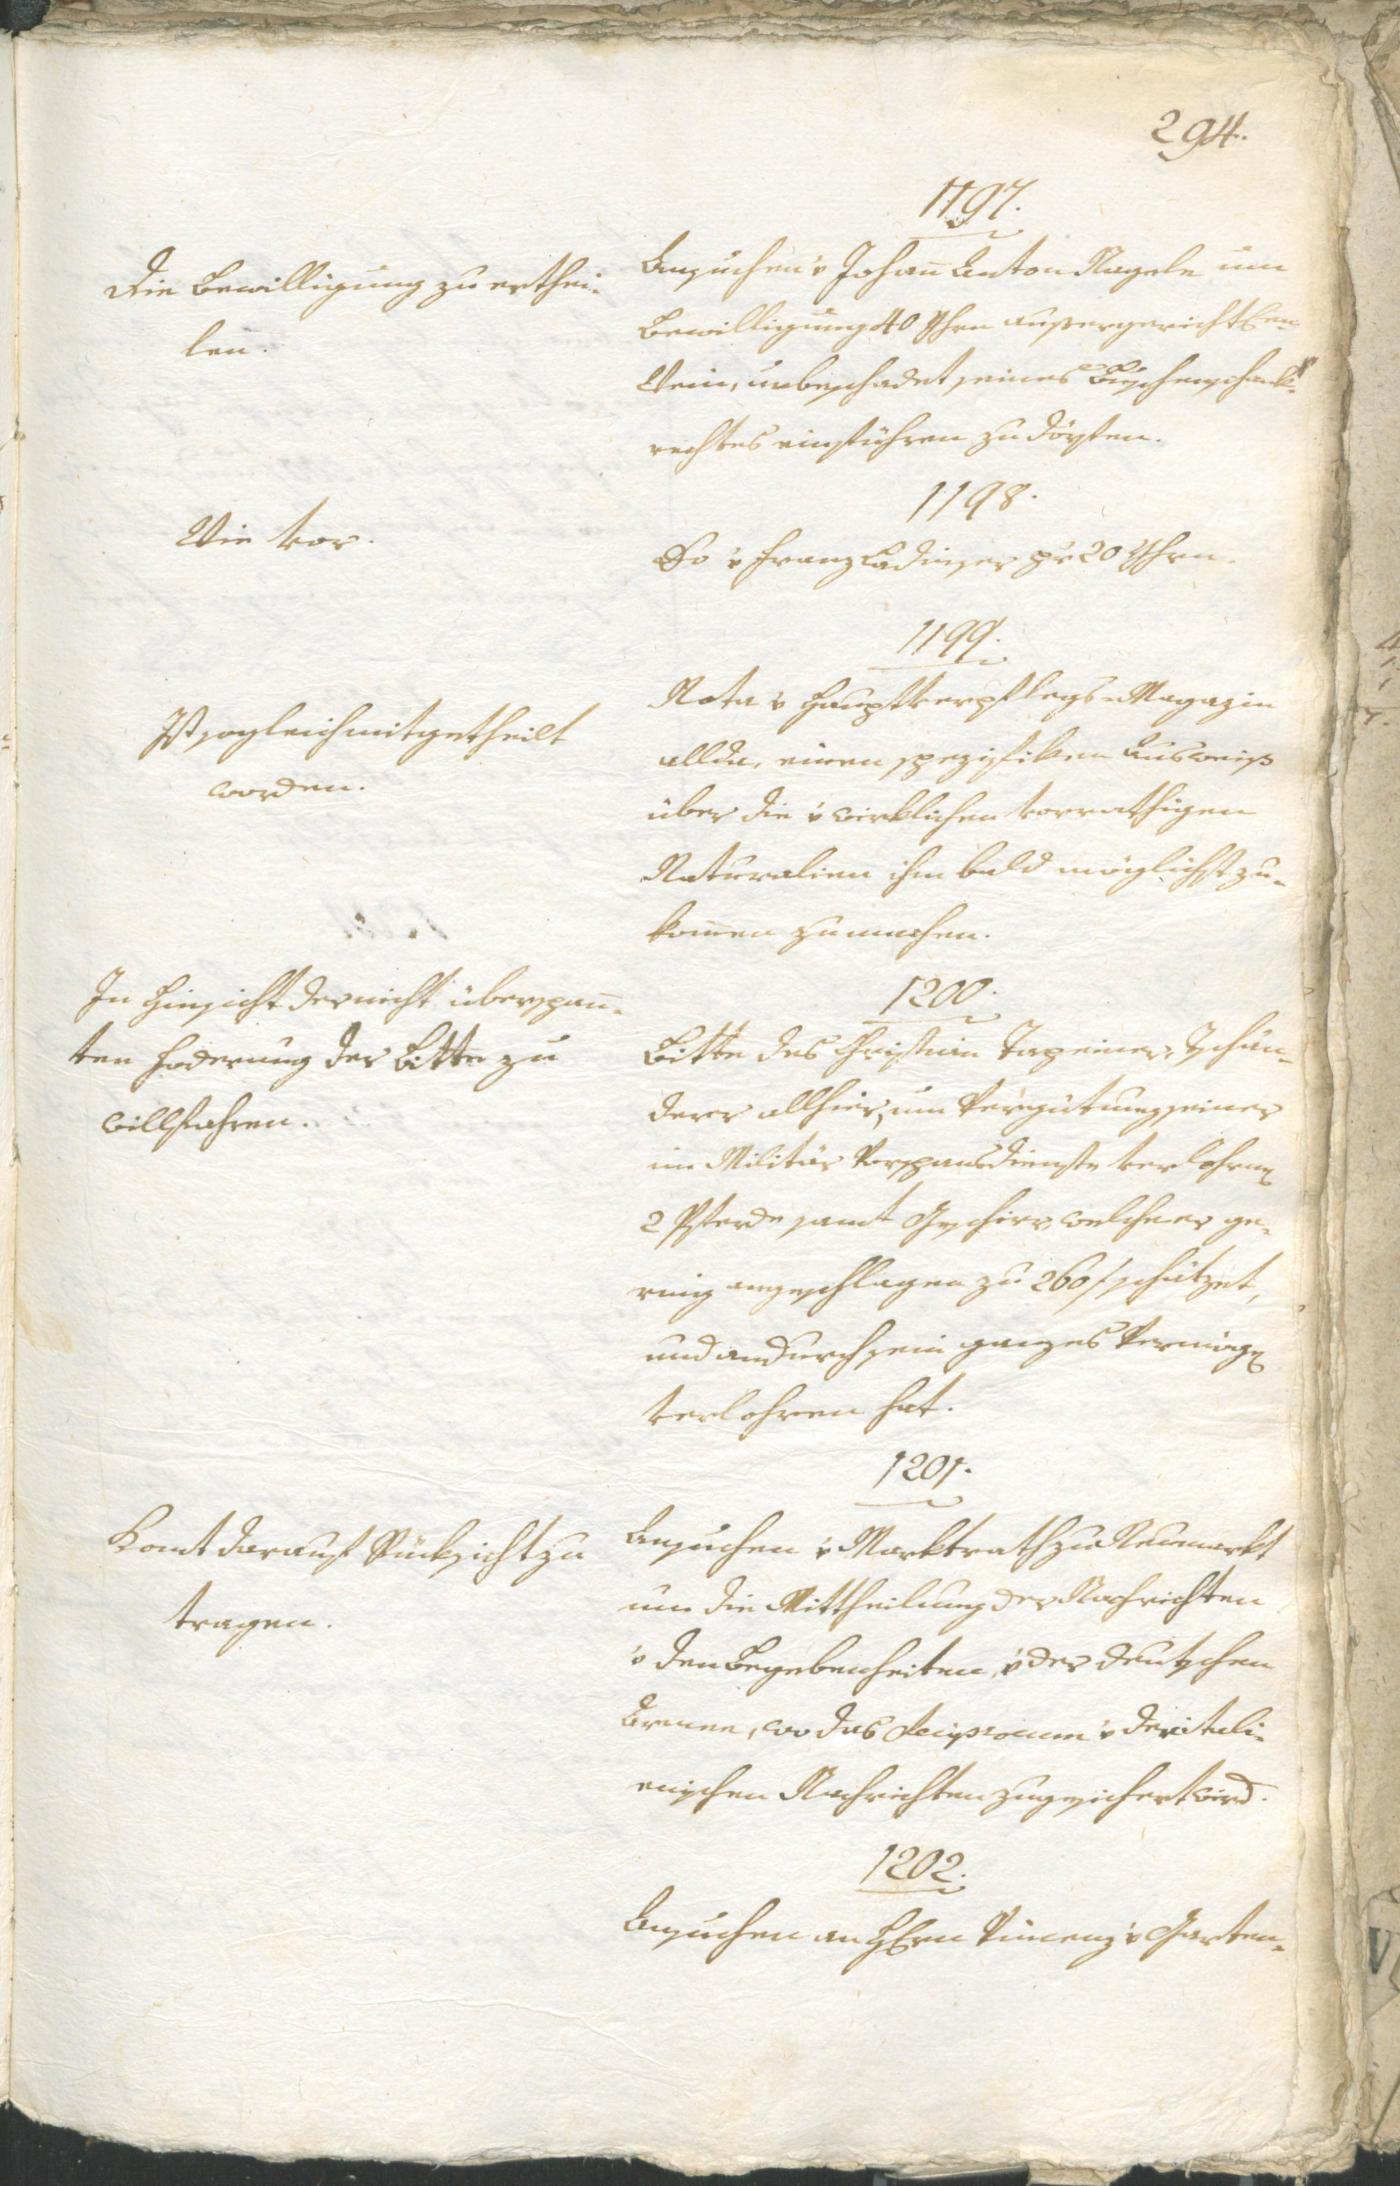 294.
1197.
Die Bewilligung zu erthei-
len.
Ansuchen v Johan̄ Anton Nagele um
Bewilligung 40 Yhrn aussergerichtlen
Wein, unbeschadet seines Buschenschank-
rechtes einführen zu dörften.
1198.
Wie vor.
Do v Franz Ladinser pr 20 Yhrn.
1199.
Ist sogleich mitgetheilt
worden.
Nota v Hauptverpflegs-Magazin
allda, einen spezifiken Ausweiß
über die v wirklichen vorrathigen
Naturalien ihm bald möglichst zu-
kom̄en zu machen.
1200.
In Hinsicht der nicht überspan̄-
ten Foderung der Bitte zu
willfahren.
Bitte des Christian Tapeiner, Tschän-
derer allhier, um Vergütung seiner
im Militär Vorspansdienste verlohrnen
2 Pferde samt Geschirr, welche er ge-
ring angeschlagen zu 260 f schätzet,
und andurch sein ganzes Vermögen
verlohren hat.
1201.
Komt darauf Rücksicht zu
tragen.
Ansuchen v Marktrath zu Neumarkt
um die Mittheilung der Nachrichten
v den Begebenheiten, v der deutschen
Armee, wo das Reciprocum v der itali-
enischen Nachrichten zugesichert wird.
1202.
Ansuchen an HErrn Vincenz v Garten-